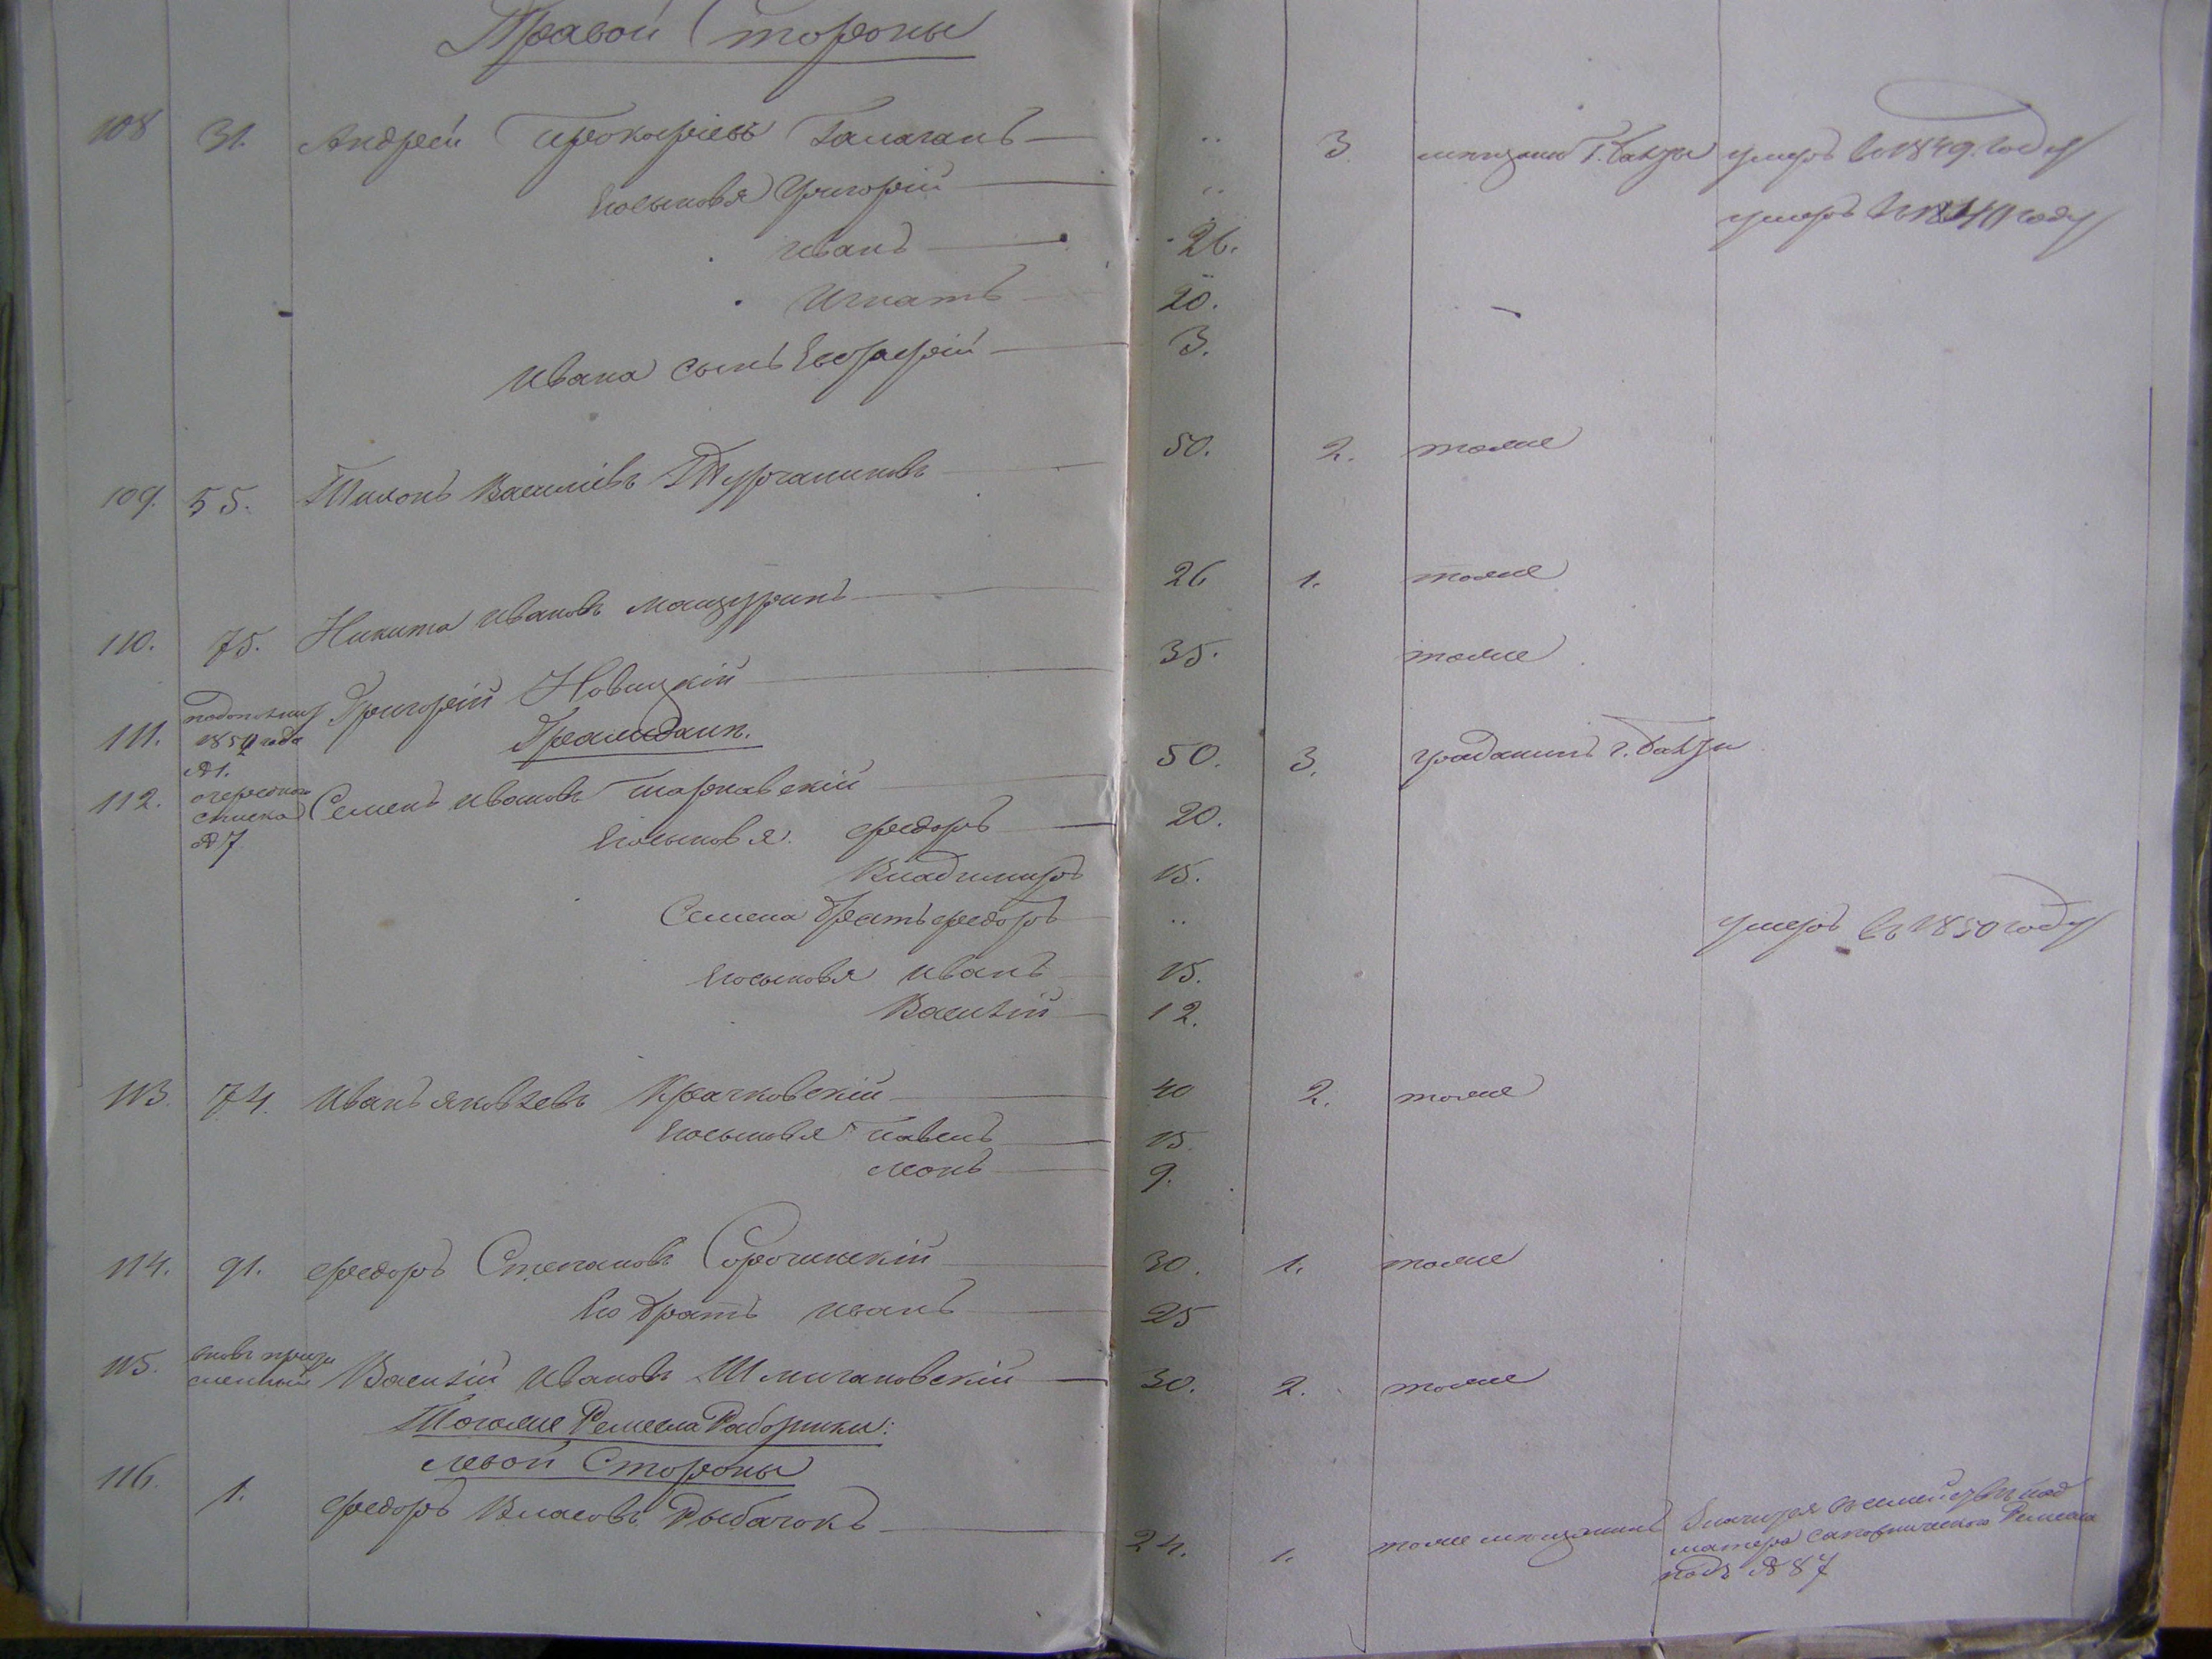 Правой Стороны
108 31. Андрей Прокофьевъ Галаганъ — „ 3. мещане Г. Балты умеръ въ 1849 году
Его сыновья Григорій — „ умеръ въ 1841 году
Иванъ — 26.
Игнатъ — 20.
Ивана сынъ Евграфій — 3.
109. 55. Тихонъ Васильевъ Турчаниновъ — 50. 2. тоже
110. 75. Никита Ивановъ Мащуринъ — 26 1. тоже
111. 1850 года №1. Григорій Новицкій — 35. тоже
Граждане.
112. очередного списка №7 Семенъ Ивановъ Тарнавскій — 50. 3. гражданинъ г. Балты
Его сыновья. Федоръ — 20.
Владимиръ 15.
Семена братъ Федоръ — „ умеръ въ 1850 году
Его сыновья Иванъ — 15.
Василій — 12.
113. 74. Иванъ Яковлевъ Крачковскій — 40 2. тоже
Его сыновья Павелъ — 15.
Леонъ — 9.
114. 91. Федоръ Степановъ Сорочинскій — 30. 1. тоже
Его братъ Иванъ — 25
115. вновь Василій Ивановъ Шмигановскій — 30. 2. тоже
Тогоже Ремесла Работники:
Левой Стороны
116. 1. Федоръ Власовъ Рыбачокъ — 24. 1. тоже мещанинъ
мастера сапожническаго Ремесла
подъ №87